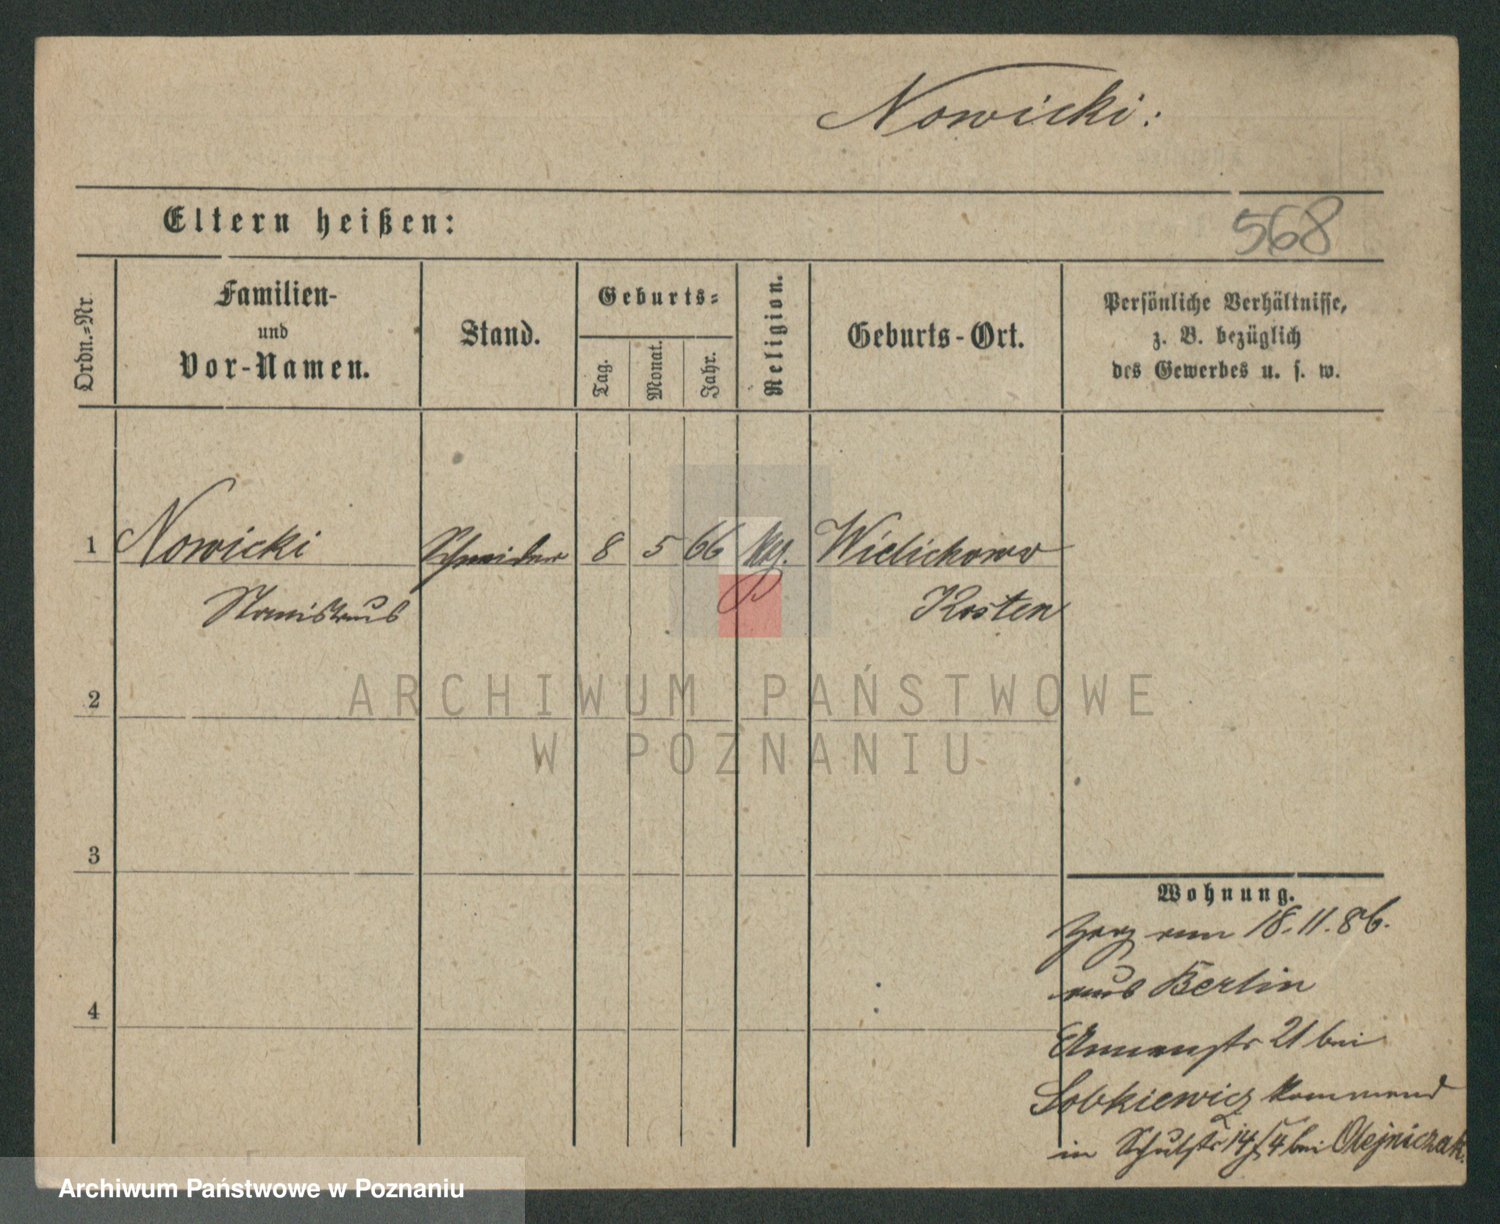 Nowicki:
Eltern heißen:
568
Ordn.-Nr.
Familien-
und
Vor-Namen.
Stand.
Geburts-
Tag.
Monat.
Jahr.
Religion.
Geburts-Ort.
Persönliche Verhältnisse,
z. B. bezüglich
des Gewerbes u. s. w.
1 Nowicki Schneider 8 5 66 Wielichowo
Stanislaus Kosten
ARCHIWUM PAŃSTWOWE
W POZNANIU
2
3
4
Wohnung.
18.11.86.
aus Berlin
21 bei
Sobkiewicz kommend
in Schulstr 14 bei Olejniczak.
Archiwum Państwowe w Poznaniu